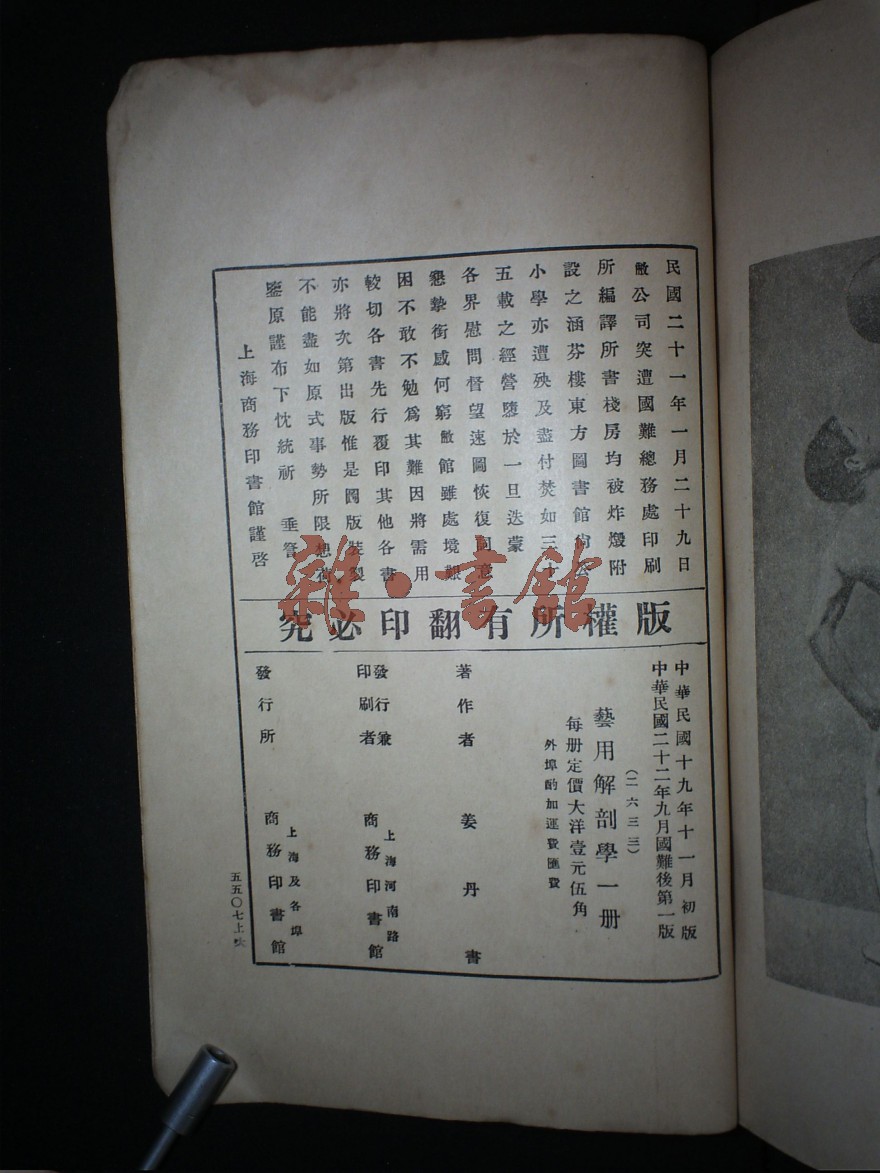 民國二十一年一月二十九日
敝公司突遭國難總務處印刷
所編譯所書棧房均被炸燬附
設之涵芬樓東方圖書館尙公
小學亦遭殃及盡付焚如三十
五載之經營墮於一旦迭蒙
各界慰問督望速圖恢復詞意
懇摯銜感何窮敝館雖處境艱
困不敢不勉爲其難因將需用
較切各書先行覆印其他各書
亦將次第出版惟是圖版裝製
不能盡如原式事勢所限想荷
鑒原謹布下忱統祈 垂詧
上海商務印書館謹啓
版權所有翻印必究
中華民國十九年十一月初版
中華民國二十二年九月國難後第一版
(二六三三)
藝用解剖學一册
每册定價大洋壹元伍角
外埠酌加運費匯費
著作者 姜丹書
發行兼印刷者 上海河南路 商務印書館
發行所 上海及各埠 商務印書館
五五〇七上
雜·書館